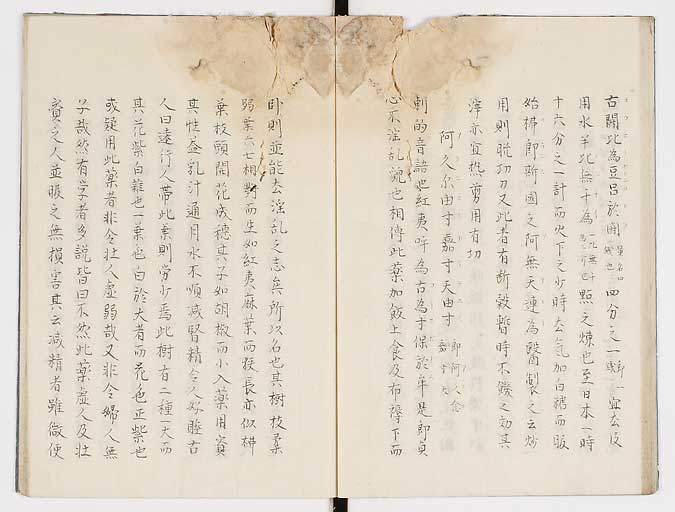 古闢比為豆呂於閞 四分之一 宜去皮
用水半比無于為 點之煉也至日本一時
十六分之一計而火下之少時去氣加白糖而服
始拂郎斯國之阿無天連為醫制之云炒
用則脱功力又此者有斷穀暫時不饑之効其
滓亦宜熱剪用有功
阿久尓由寸嘉寸天由寸
刺的音語也紅夷呼為古為寸保於牟是即貞
心不淫乱貌也相傳此薬加飯上食及布褥下而
臥則並能去淫乱之志矣所以名也其樹枝柔
弱葉六七相對而生如紅夷麻葉而狭長亦似柳
葉枝頭開花成穗其子如胡椒而小入薬用資
其性益乳汁通月水不順減腎精令人好睡古
人曰遠行人帶此葉則労少焉此樹有二種一大而
其花紫白雜也一葉也白於大者而花色正紫也
或疑用此薬者非令壮人虚弱哉又非令婦人無
子哉然有学者多説皆曰不然此薬虚人及壮
實之人並服之無損害其云減精者雖微使